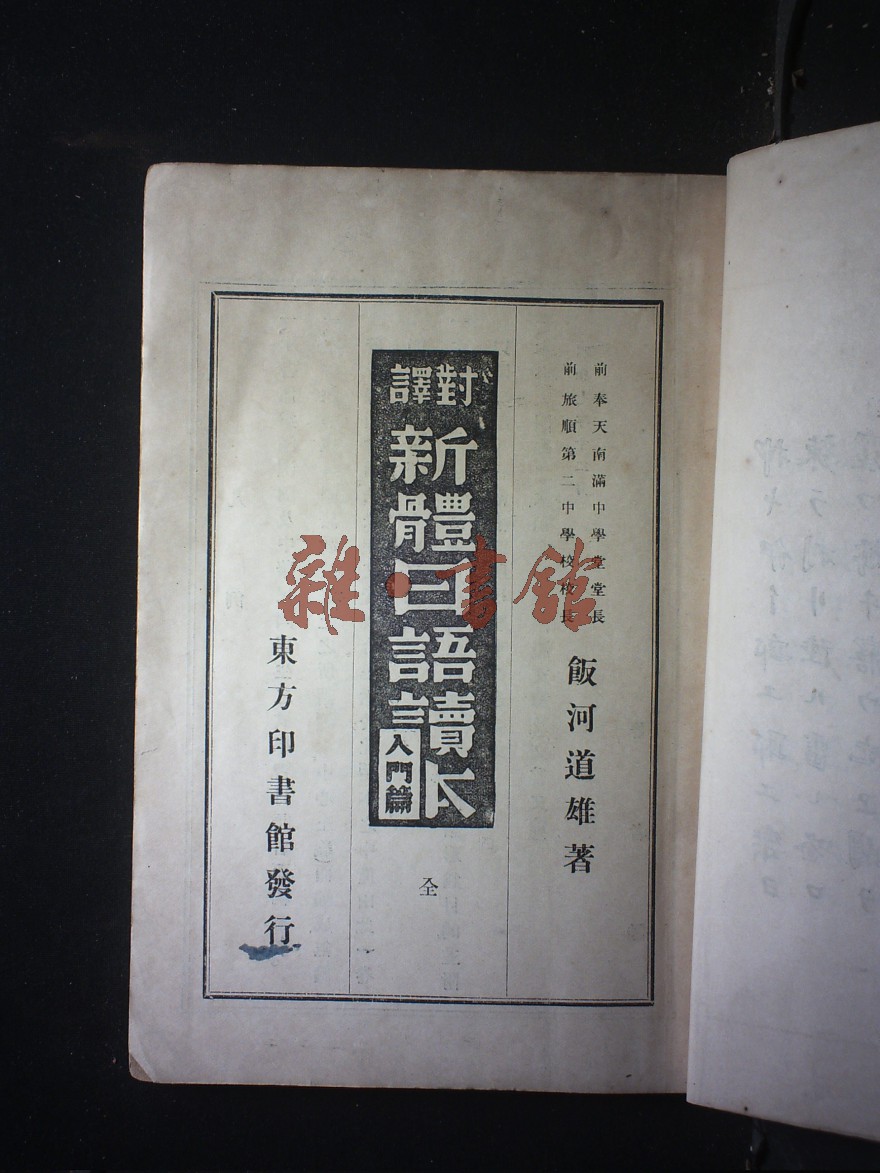 前奉天南滿中學堂堂長
前旅順第二中學校校長
飯河道雄著
對譯
新體日語讀本
入門篇
全
東方印書館發行
雜·書館